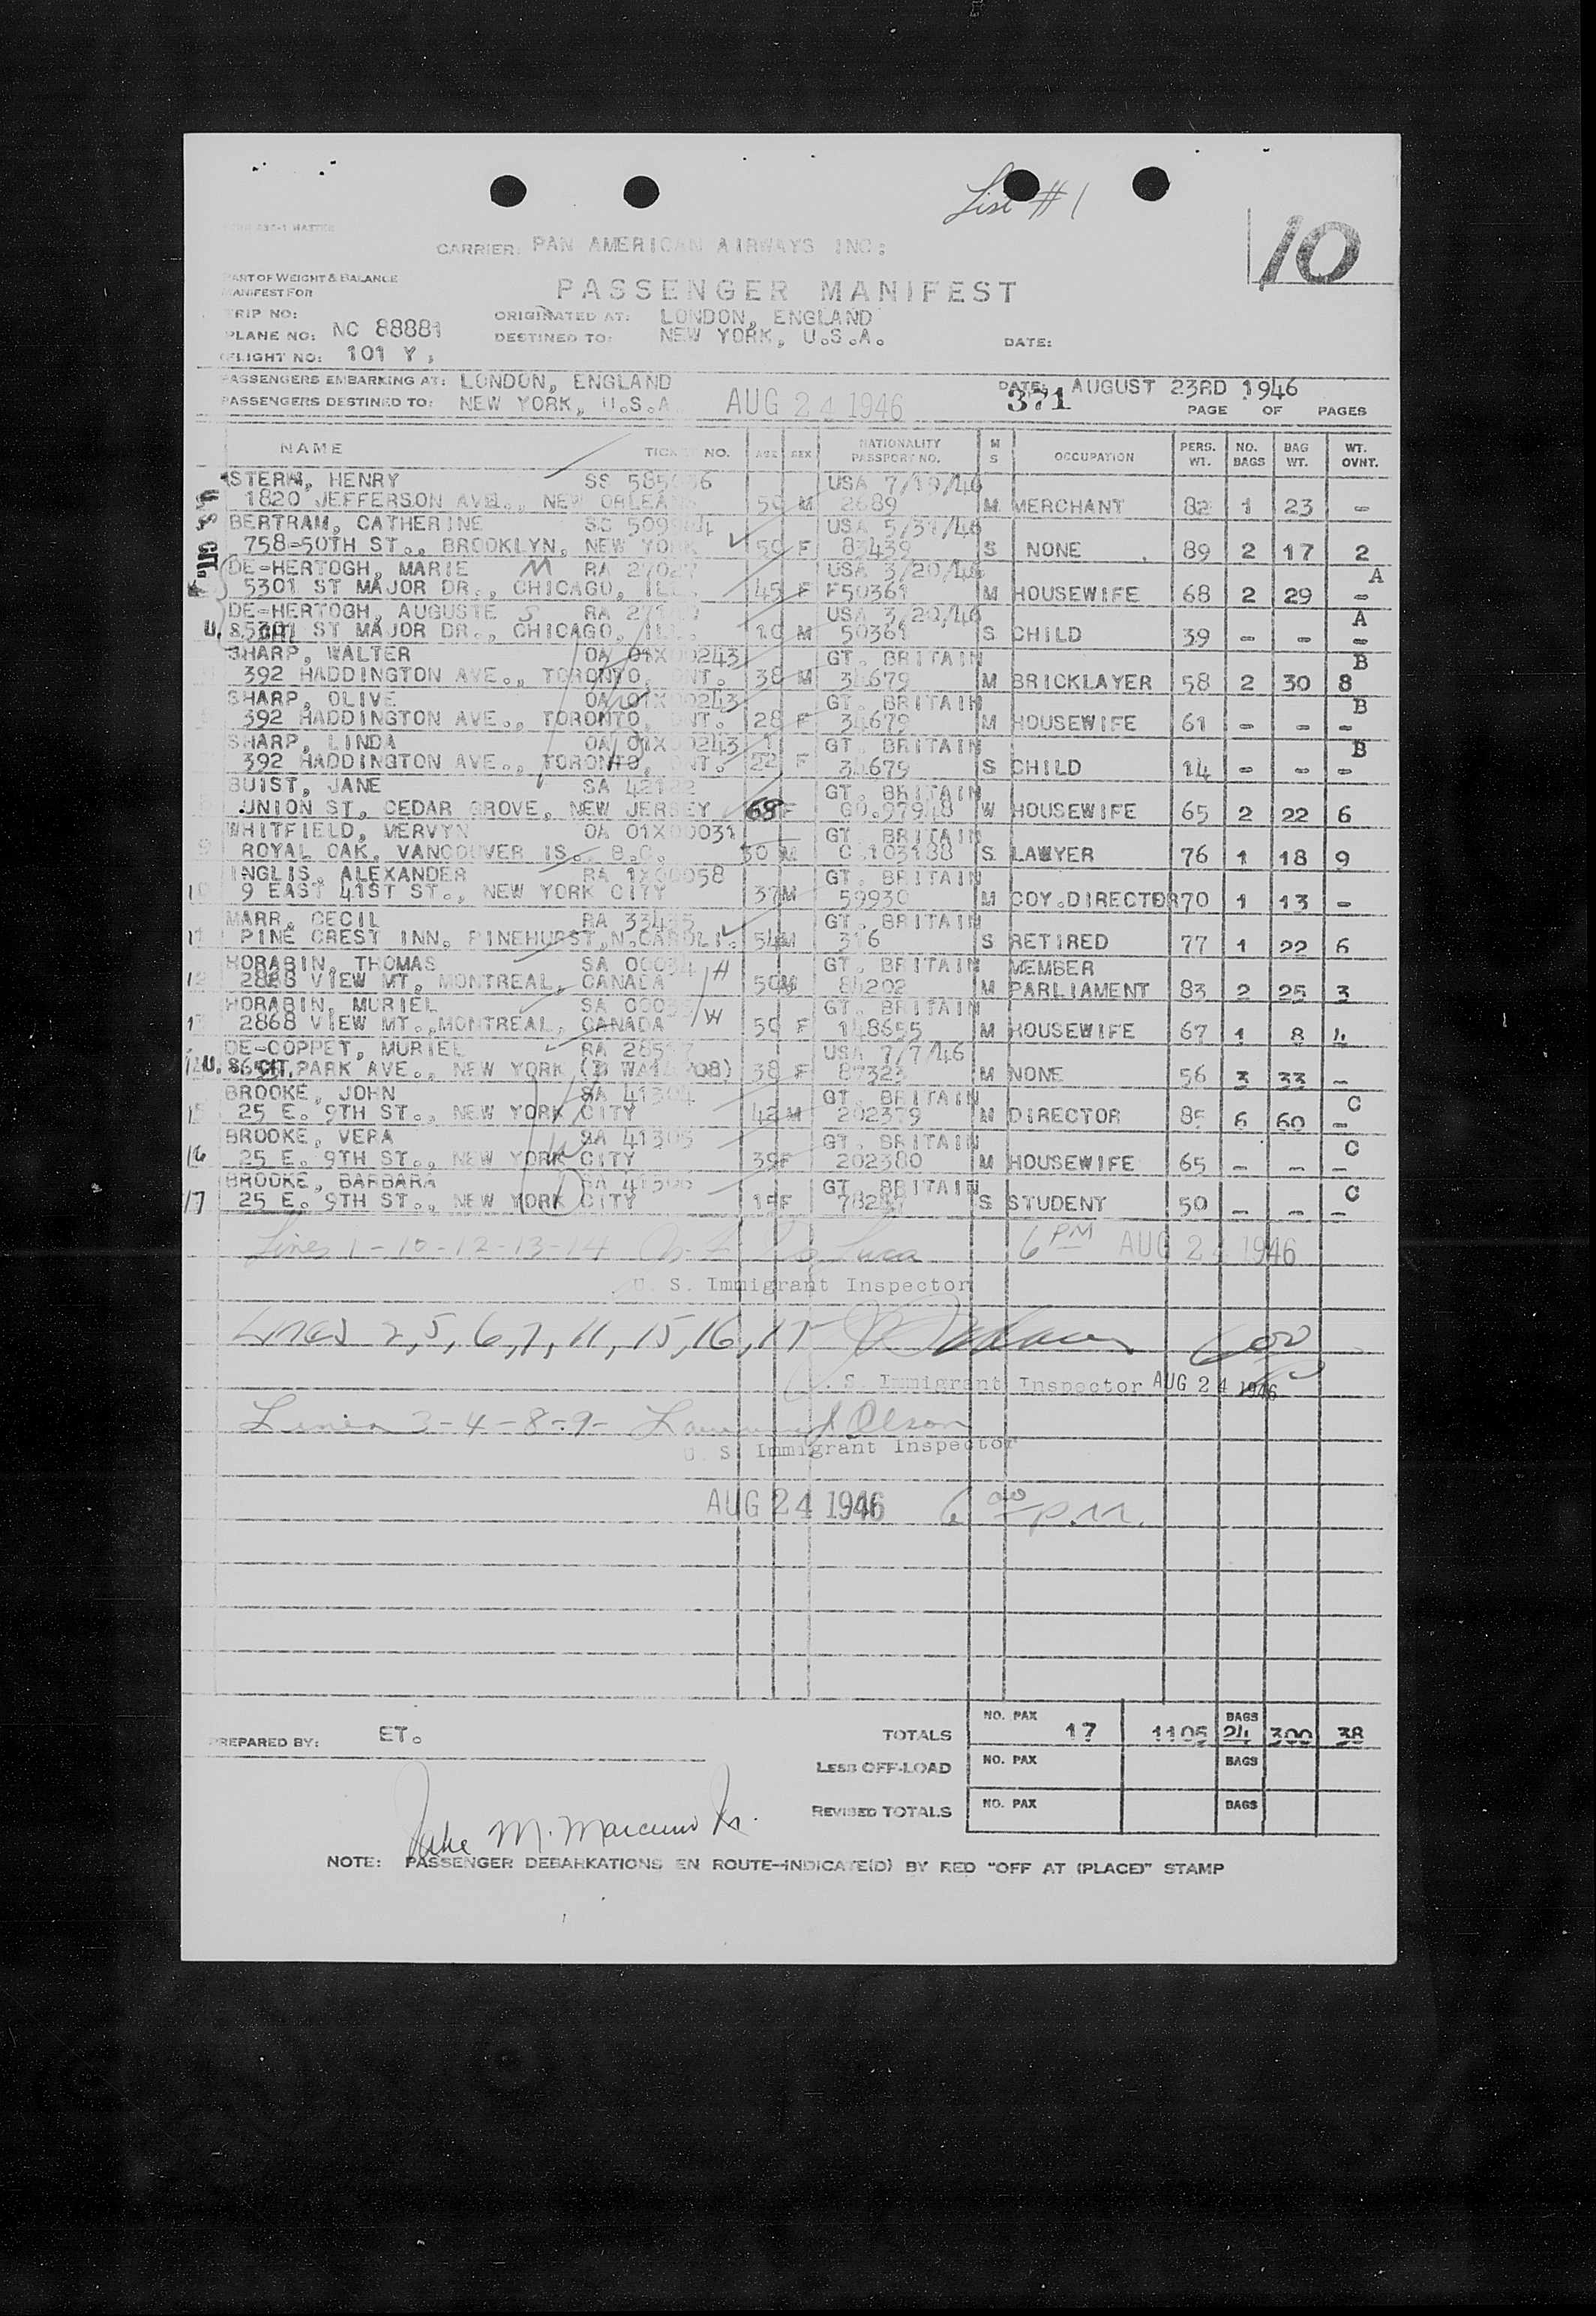 List #1
10
CARRIER: PAN AMERICAN AIRWAYS INC:
PART OF WEIGHT & BALANCE
MANIFEST FOR
PASSENGER MANIFEST
TRIP NO: ORIGINATED AT: LONDON, ENGLAND
PLANE NO: NC 88881 DESTINED TO: NEW YORK, U.S.A. DATE:
FLIGHT NO: 101 Y
PASSENGERS EMBARKING AT: LONDON, ENGLAND DATE: AUGUST 23RD 1946
PASSENGERS DESTINED TO: NEW YORK, U.S.A. AUG 24 1946 371 PAGE OF PAGES
NAME TICKET NO. AGE SEX NATIONALITY PASSPORT NO. M S OCCUPATION PERS. WT. NO. BAGS BAG WT. WT. OVNT.
STERN, HENRY SS USA 7/19/46
1820 JEFFERSON AVE., NEW ORLEANS 50 M 2689 M MERCHANT 82 1 23 -
BERTRAM, CATHERINE USA 5/31/46
758-50TH ST., BROOKLYN, NEW YORK 50 F 83439 S NONE 89 2 17 2
DE-HERTOGH, MARIE M RA USA 3/20/46 A
5301 ST MAJOR DR., CHICAGO, ILL. 45 F F50361 M HOUSEWIFE 68 2 29 -
DE-HERTOGH, AUGUSTE S RA USA 3/20/46 A
U. S. CIT. 5301 ST MAJOR DR., CHICAGO, ILL. 10 M 50361 S CHILD 39 - - -
SHARP, WALTER OA 01X00243 GT. BRITAIN B
392 HADDINGTON AVE., TORONTO, ONT. 38 M 34679 M BRICKLAYER 58 2 30 8
SHARP, OLIVE OA 01X00243 GT. BRITAIN B
392 HADDINGTON AVE., TORONTO, ONT. 28 F 34679 M HOUSEWIFE 61 - - -
SHARP, LINDA OA 01X00243 1 GT. BRITAIN B
392 HADDINGTON AVE., TORONTO, ONT. 22 F 34679 S CHILD 14 - - -
BUIST, JANE SA GT. BRITAIN
UNION ST, CEDAR GROVE, NEW JERSEY 68 F W HOUSEWIFE 65 2 22 6
WHITFIELD, MERVYN OA 01X00031 GT. BRITAIN
9 ROYAL OAK, VANCOUVER IS., B.C. 30 M C.103188 S LAWYER 76 1 18 9
INGLIS, ALEXANDER RA 1X00058 GT. BRITAIN
10 9 EAST 41ST ST., NEW YORK CITY 37 M 59930 M COY.DIRECTOR 70 1 13 -
MARR, CECIL RA GT. BRITAIN
11 PINE CREST INN, PINEHURST, N.CAROLI. 54 M 316 S RETIRED 77 1 22 6
HORABIN, THOMAS SA H GT. BRITAIN MEMBER
12 2868 VIEW MT, MONTREAL, CANADA 50 M 84202 M PARLIAMENT 83 2 25 3
HORABIN, MURIEL SA W GT. BRITAIN
13 2868 VIEW MT., MONTREAL, CANADA 50 F 148655 M HOUSEWIFE 67 1 8 4
DE-COPPET, MURIEL RA USA 7/7/46
U. S. CIT. PARK AVE., NEW YORK 38 F 87323 M NONE 56 3 33 -
BROOKE, JOHN SA 41304 GT. BRITAIN C
15 25 E. 9TH ST., NEW YORK CITY 42 M 202379 M DIRECTOR 85 6 60 -
BROOKE, VERA SA 41305 GT. BRITAIN C
16 25 E. 9TH ST., NEW YORK CITY 39 F 202380 M HOUSEWIFE 65 - - -
BROOKE, BARBARA SA 41306 GT. BRITAIN C
17 25 E. 9TH ST., NEW YORK CITY 15 F S STUDENT 50 - - -
Lines 1-10-12-13-14 6 PM AUG 24 1946
U. S. Immigrant Inspector
Lines 2, 5, 6, 7, 11, 15, 16, 17 600
U. S. Immigrant Inspector AUG 24 1946
Lines 3-4-8-9- Olson
U. S. Immigrant Inspector
AUG 24 1946 6 00 P.M.
PREPARED BY: ET. TOTALS NO. PAX 17 1105 BAGS 24 300 38
LESS OFF-LOAD NO. PAX BAGS
REVISED TOTALS NO. PAX BAGS
M. Jr.
NOTE: PASSENGER DEBARKATIONS EN ROUTE-INDICATE(D) BY RED "OFF AT (PLACE)" STAMP